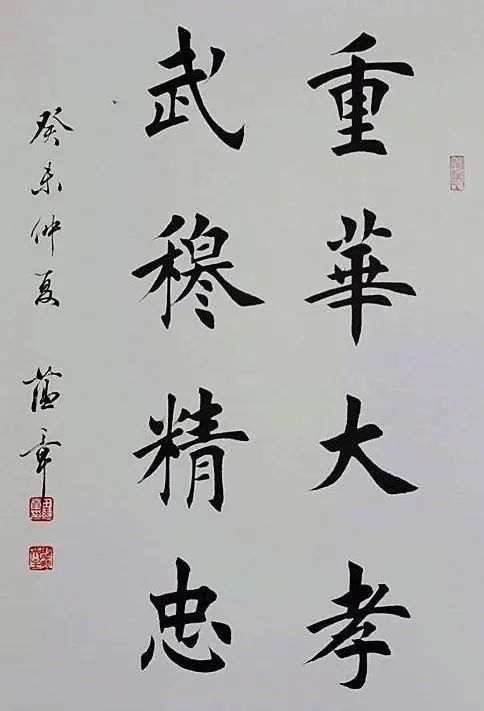 重華大孝
武穆精忠
癸未仲夏 蕴章